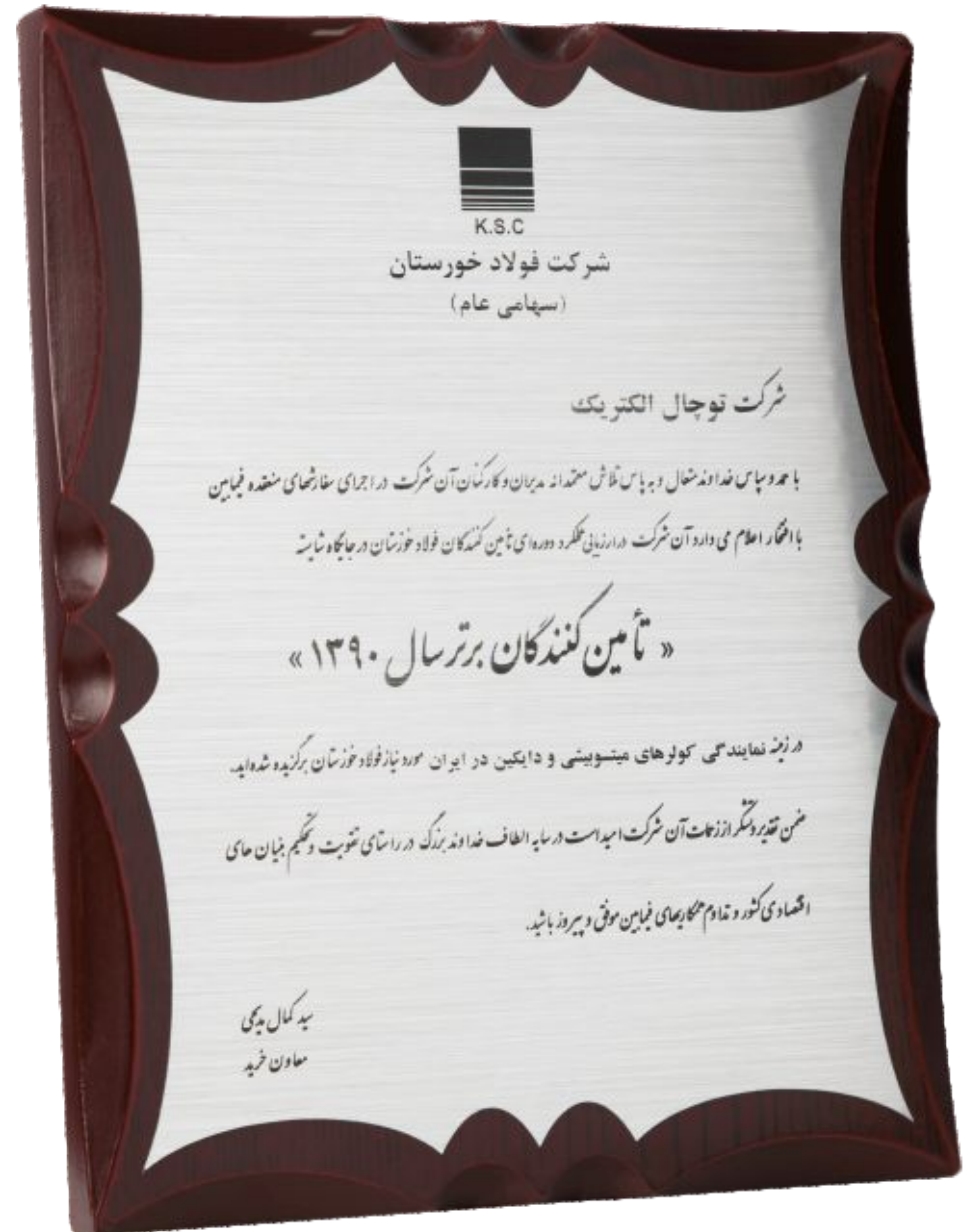 K.S.C
شرکت فولاد خورستان
(سهامی عام)
شرکت توچال الکتریک
با حمد و سپاس خداوند متعال و به پاس تلاش معتمدانه مدیران و کارکنان آن شرکت در اجرای سفارشهای منعقده فیمابین
با افتخار اعلام می دارد آن شرکت در ارزیابی عملکرد دوره ای تأمین کنندگان فولاد خوزستان در جایگاه شایسته
« تأمین کنندگان برتر سال ۱۳۹۰ »
در زمینه نمایندگی کولرهای میتسوبیشی و دایکین در ایران مورد نیاز فولاد خوزستان برگزیده شده اید.
ضمن تقدیر و تشکر از زحمات آن شرکت امید است در سایه الطاف خداوند بزرگ در راستای تقویت و تحکیم بنیان های
اقتصادی کشور و تداوم همکاریهای فیمابین موفق و پیروز باشید.
سید کمال مدیحی
معاون خرید